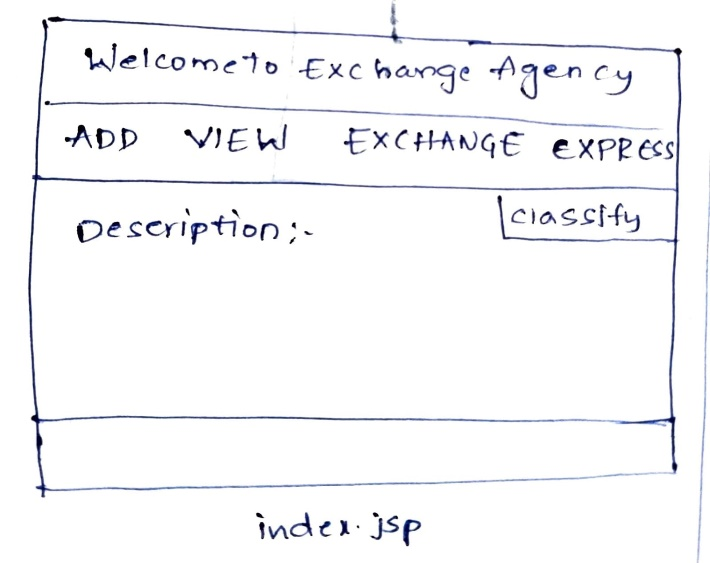 Welcome to Exchange Agency
ADD VIEW EXCHANGE EXPRESS
Description:- classify
index.jsp